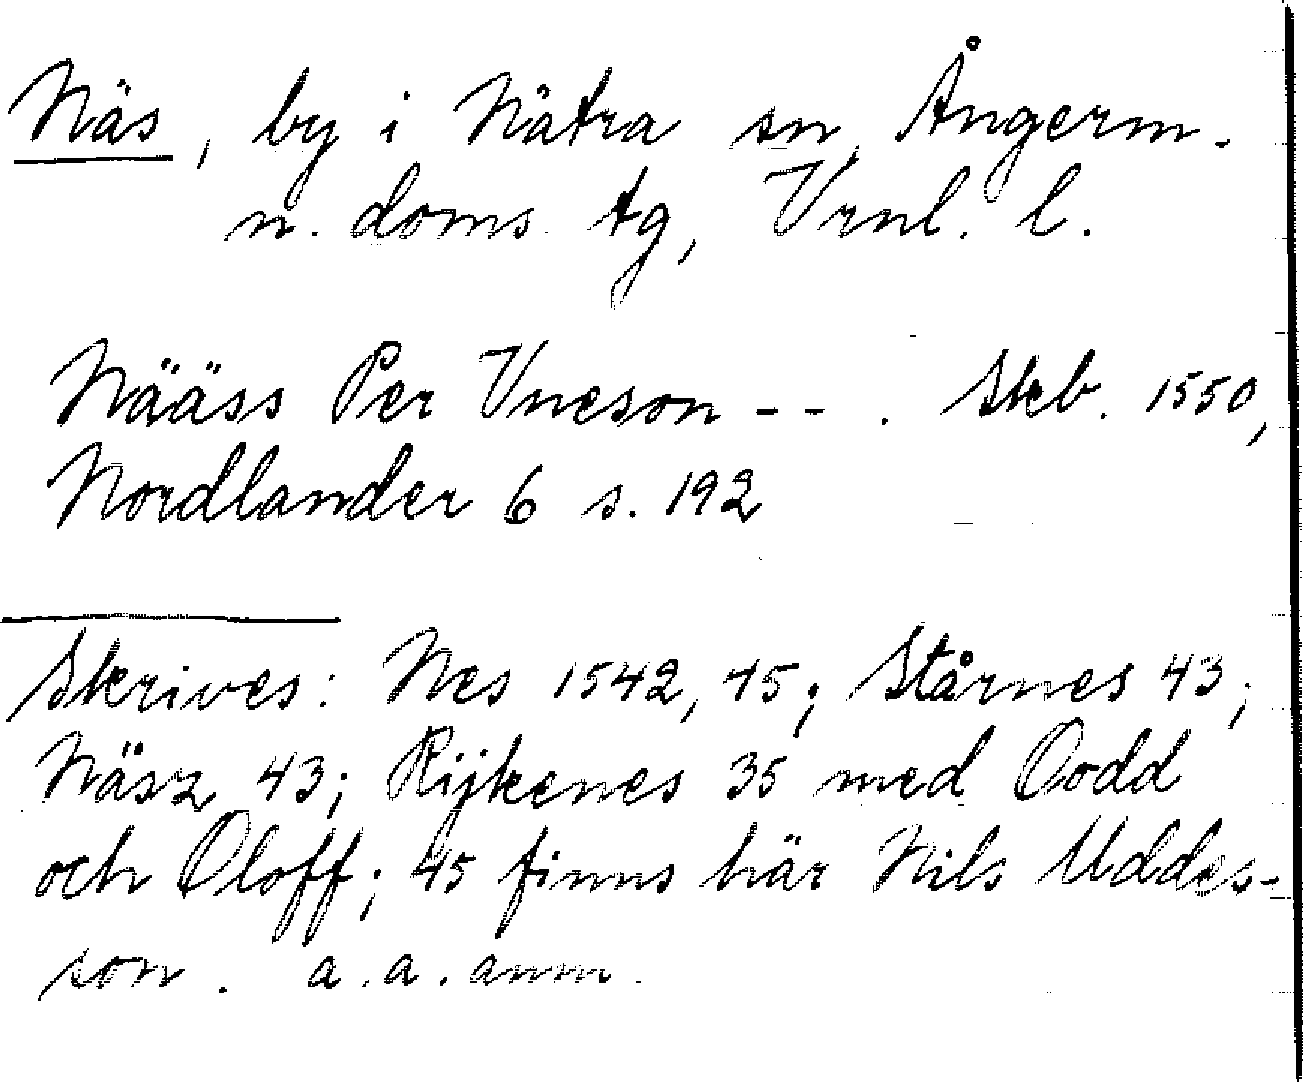 Näs, by i Nätra sn, Ångerm.
n. doms. tg, Vrnl. l.
Nääss Per Vneson - - . Skb. 1550,
Nordlander 6 s. 192
Skrives: Nes 1542, 45; Stårnes 43;
Näsz 43; Rijkenes 35 med Oodd
och Oloff; 45 finns här Nils Uddes-
son. a.a. anm.